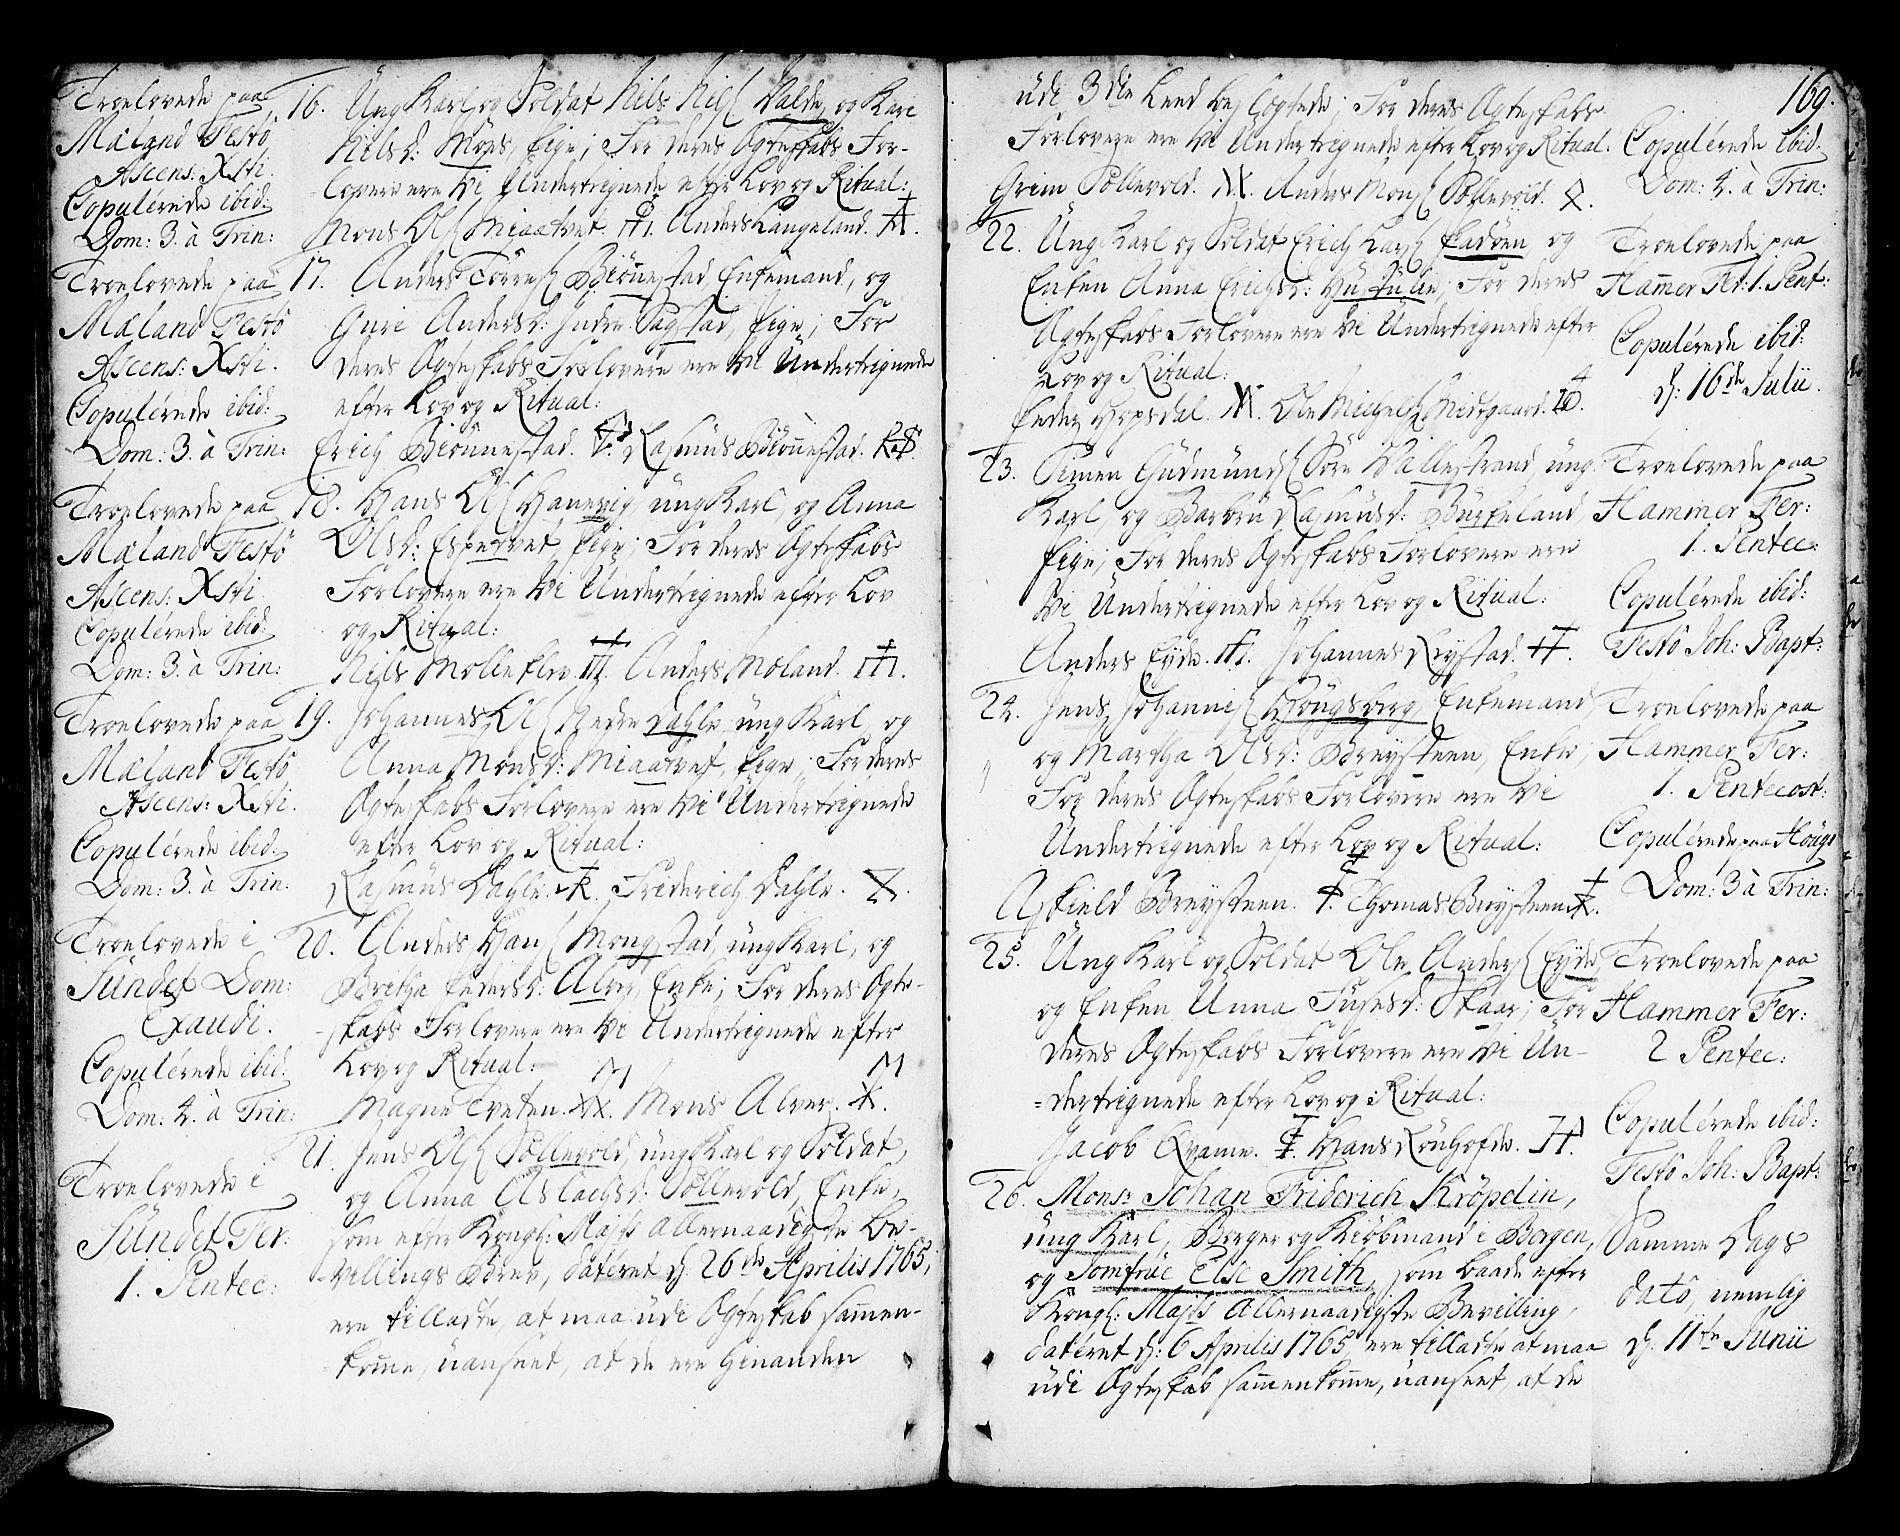 Troelovede paa
Mæland Festô
Ascens: Xsti.
Copulérede ibid:
Dom: 3. à Trin:
16. Ung Karl og Soldat Nils Nils: Valde, og Kari
Nilsd: Moës, Pige; For deres Ægteskabs For-
-lovere ere Vi Undertegnede efter Lov og Ritual:
Mons Ols: Miaatvet. Anders Langeland.
Troelovede paa
Mæland Festô
Ascens: Xsti.
Copulérede ibid:
Dom: 3. à Trin:
17. Anders Torres: Biönnestad Enkemand, og
Guri Andersd: Indre Sagstad, Pige; For
deres Ægteskabs Forlovere ere Vi Undertegnede
efter Lov og Ritual:
Erich Biönnestad. Rasmus Biönnestad.
Troelovede paa
Mæland Festô
Ascens: Xsti
Copulérede ibid:
Dom: 3. à Trin:
18. Hans Ols: Hanevig, ung Karl, og Anna
Olsd: Espetvet, Pige; For deres Ægteskabs
Forlovere ere Vi Undertegnede efter Lov
og Ritual:
Nils Molleklev. Anders Mæland.
Troelovede paa
Mæland Festô
Ascens: Xsti.
Copulérede ibid:
Dom: 3. à Trin:
19. Johannes Ols: Nedre Dahle, ung Karl, og
Anna Monsd: Miaatvet, Pige; For deres
Ægteskabs Forlovere ere Vi Undertegnede
efter Lov og Ritual:
Rasmus Dahle. Friderich Dahle.
Troelovede i
Sündet Dom:
Exaudi.
Copulérede ibid:
Dom: 4. à Trin:
20. Anders Hans: Mongstad, ung Karl, og
Britha Pedersd: Alver, Enke; For deres Ægte-
-skabs Forlovere ere Vi Undertegnede efter
Lov og Ritual:
Magne Tveten. Mons Alver.
Troelovede i
Sündet Fer:
1. Pentec:
21. Jens Ols: Söllevold, ung Karl og Soldat,
og Anna Aslachsd: Söllevold, Enke,
som efter Kongl: Majts allernaadigste Be-
-villings Brev, datéret d: 26de Aprilis 1765,
ere tilladte, at maa udi Ægteskab sam̄en-
kom̄e, uanseet, at de ere hinanden
169.
udi 3die Leed beslægtede; For deres Ægteskabs
Forlovere ere Vi Undertegnede efter Lov og Ritual:
Grim Söllevold. Anders Mons: Söllevold.
Copulérede ibid:
Dom: 4. à Trin:
22. Ung Karl og Soldat Erich Lars: Fadöen, og
Enken Anna Erichsd: Husdalen; For deres
Ægteskabs Forlovere ere Vi Undertegnede efter
Lov og Ritual:
Peder Hopsdal. Ole Michels: Midtgaard.
Troelovede paa
Ham̄er Fer: 1. Pent:
Copulérede ibid:
d: 16de Julii.
23. Simen Gudmunds: Söre Vallestrand, ung
Karl, og Barbru Rasmusd: Burkeland,
Pige; For deres Ægteskabs Forlovere ere
Vi Undertegnede efter Lov og Ritual:
Anders Eyde. Johannes Röystad.
Troelovede paa
Hammer Fer:
1. Pentec:
Copulérede ibid:
Festô Joh: Bapt:
24. Jens Johannis: Hougsberg, Enkemand,
og Martha Olsd: Breysteen, Enke;
For deres Ægteskabs Forlovere ere Vi
Undertegnede efter Lov og Ritual:
Askield Breysteen. Thomas Breysteen.
Troelovede paa
Hammer Fer:
1. Pentecost:
Copulérede paa Hougs
Dom: 3 à Trin:
25. Ung Karl og Soldat Ole Anders: Eyde,
og Enken Anna Tufesd: Skaar; For
deres Ægteskabs Forlovere ere Vi Un-
-dertegnede efter Lov og Ritual:
Jacob Qvame. Hans Rönhofde.
Troelovede paa
Hammer Fer:
2 Pentec:
Copulérede ibid:
Festô Joh: Bapt:
26. Mons: Johan Friderich Kröpelin,
ung Karl, Borger og Kiöbmand i Bergen,
og Jomfrue Else Smith, som baade efter
Kongl: Majts Allernaadigste Bevilling,
datéret d: 6 Aprilis 1765, ere tilladte at maa
udi Ægteskab sam̄enkom̄e, uanseet, at de
Samme Dags
dato, nemlig
d: 11te Junii